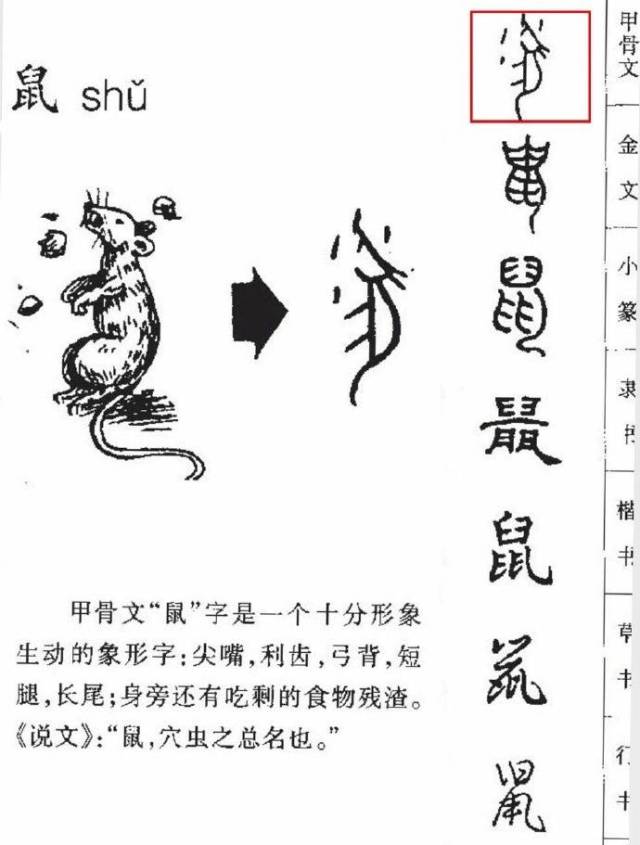 鼠 shǔ
甲骨文“鼠”字是一个十分形象
生动的象形字：尖嘴，利齿，弓背，短
腿，长尾；身旁还有吃剩的食物残渣。
《说文》：“鼠，穴虫之总名也。”
鼠
鼠
鼠
鼠
鼠
鼠
鼠
甲骨文
金文
小篆
隶书
楷书
草书
行书